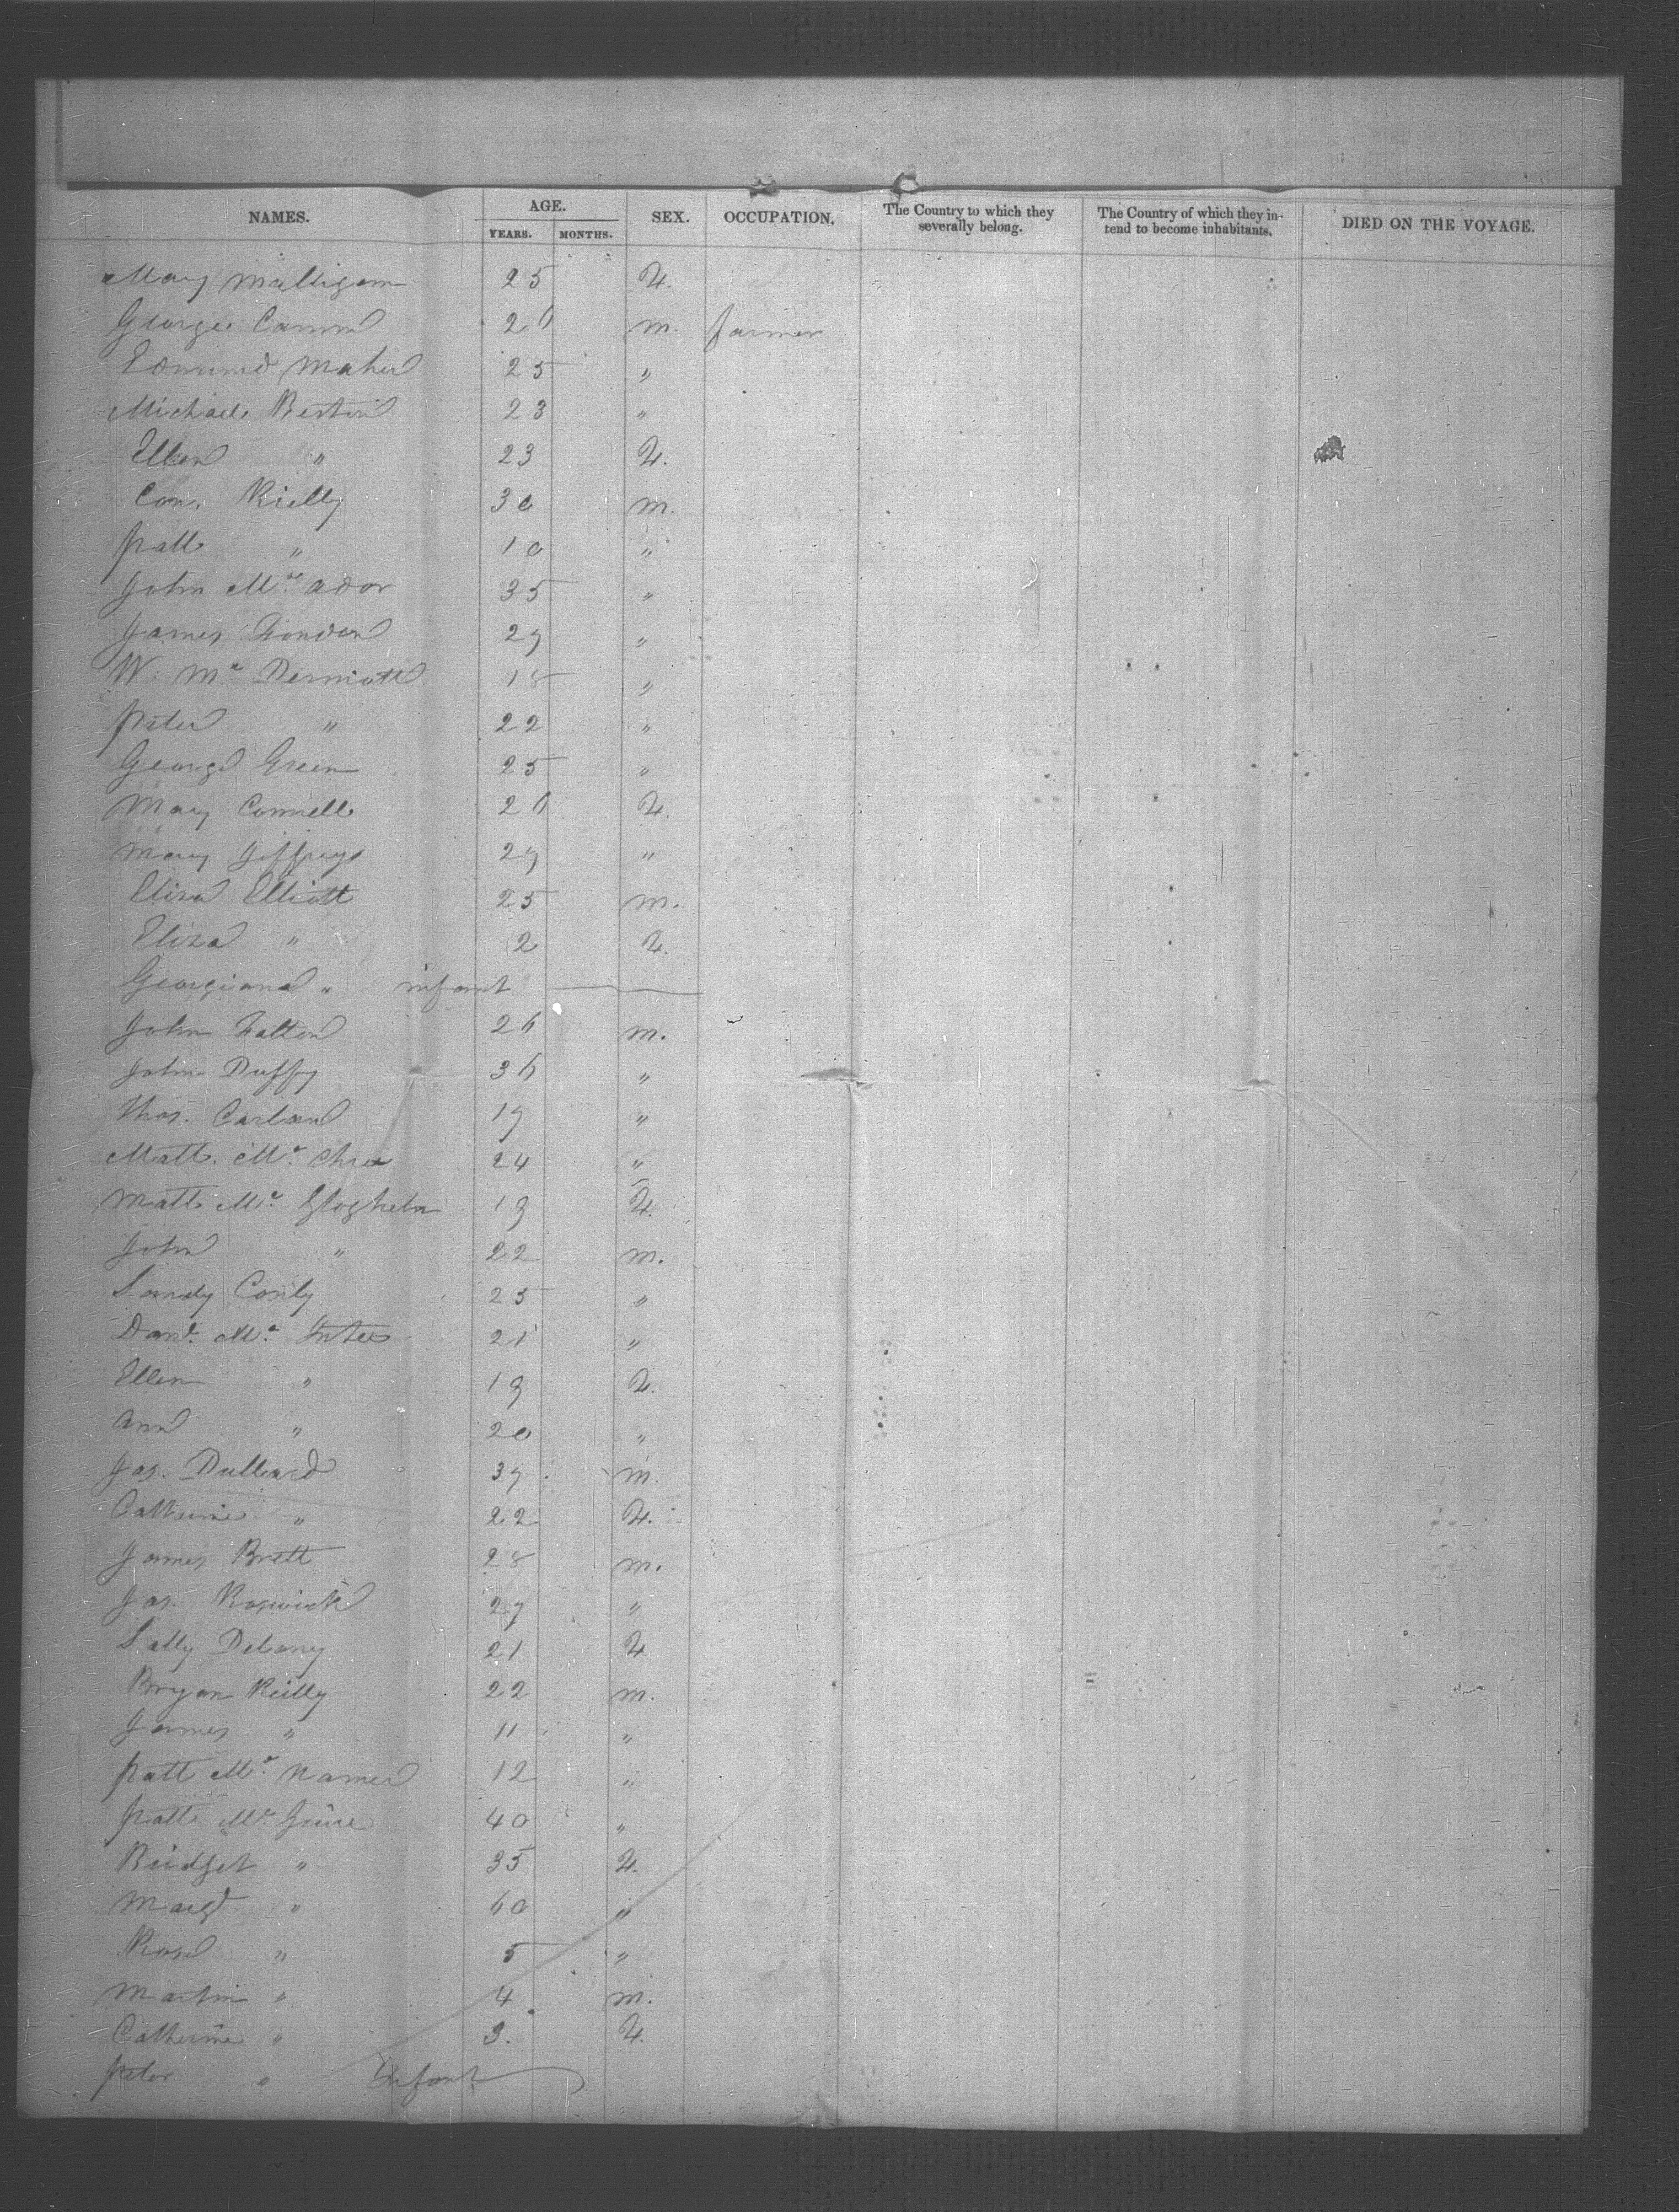 NAMES. AGE. YEARS. MONTHS. SEX. OCCUPATION. The Country to which they severally belong. The Country of which they intend to become inhabitants. DIED ON THE VOYAGE.
Mary Milligan 25 F.
George 26 m. farmer
Edmund Maher 25 "
Michael 23 "
Ellen " 23 F.
Con. Rielly 30 m.
Patt " 10 "
John Mc Ador 35 "
James London 29 "
W. Mc Dermott 18 "
Peter " 22 "
George Green 25 "
Mary Connell 26 F.
Mary Jeffreys 29 "
Eliza Elliott 25 m.
Eliza " 2 F.
Georgiana " infant
John Falton 26 m.
John Duffy 36 "
Thos. Carland 19 "
Matt. Mc 24 "
Matt Mc 19 F.
John " 22 m.
Sandy Conly 25 "
Danl. Mc Intee 21 "
Ellen " 19 F.
Ann " 20 "
Jas. Dullard 39 m.
Catherine " 22 F.
James Brett 28 m.
Jas. 29 "
Sally Delany 21 F
Bryan Reilly 22 m.
James " 11 "
Patt Mc Namee 12 "
Patt Mc Guire 40 "
Bridget " 35 F.
Margt " 60 "
Rose " 5 "
Martin " 4 m.
Catherine " 3. F.
Peter " Infant